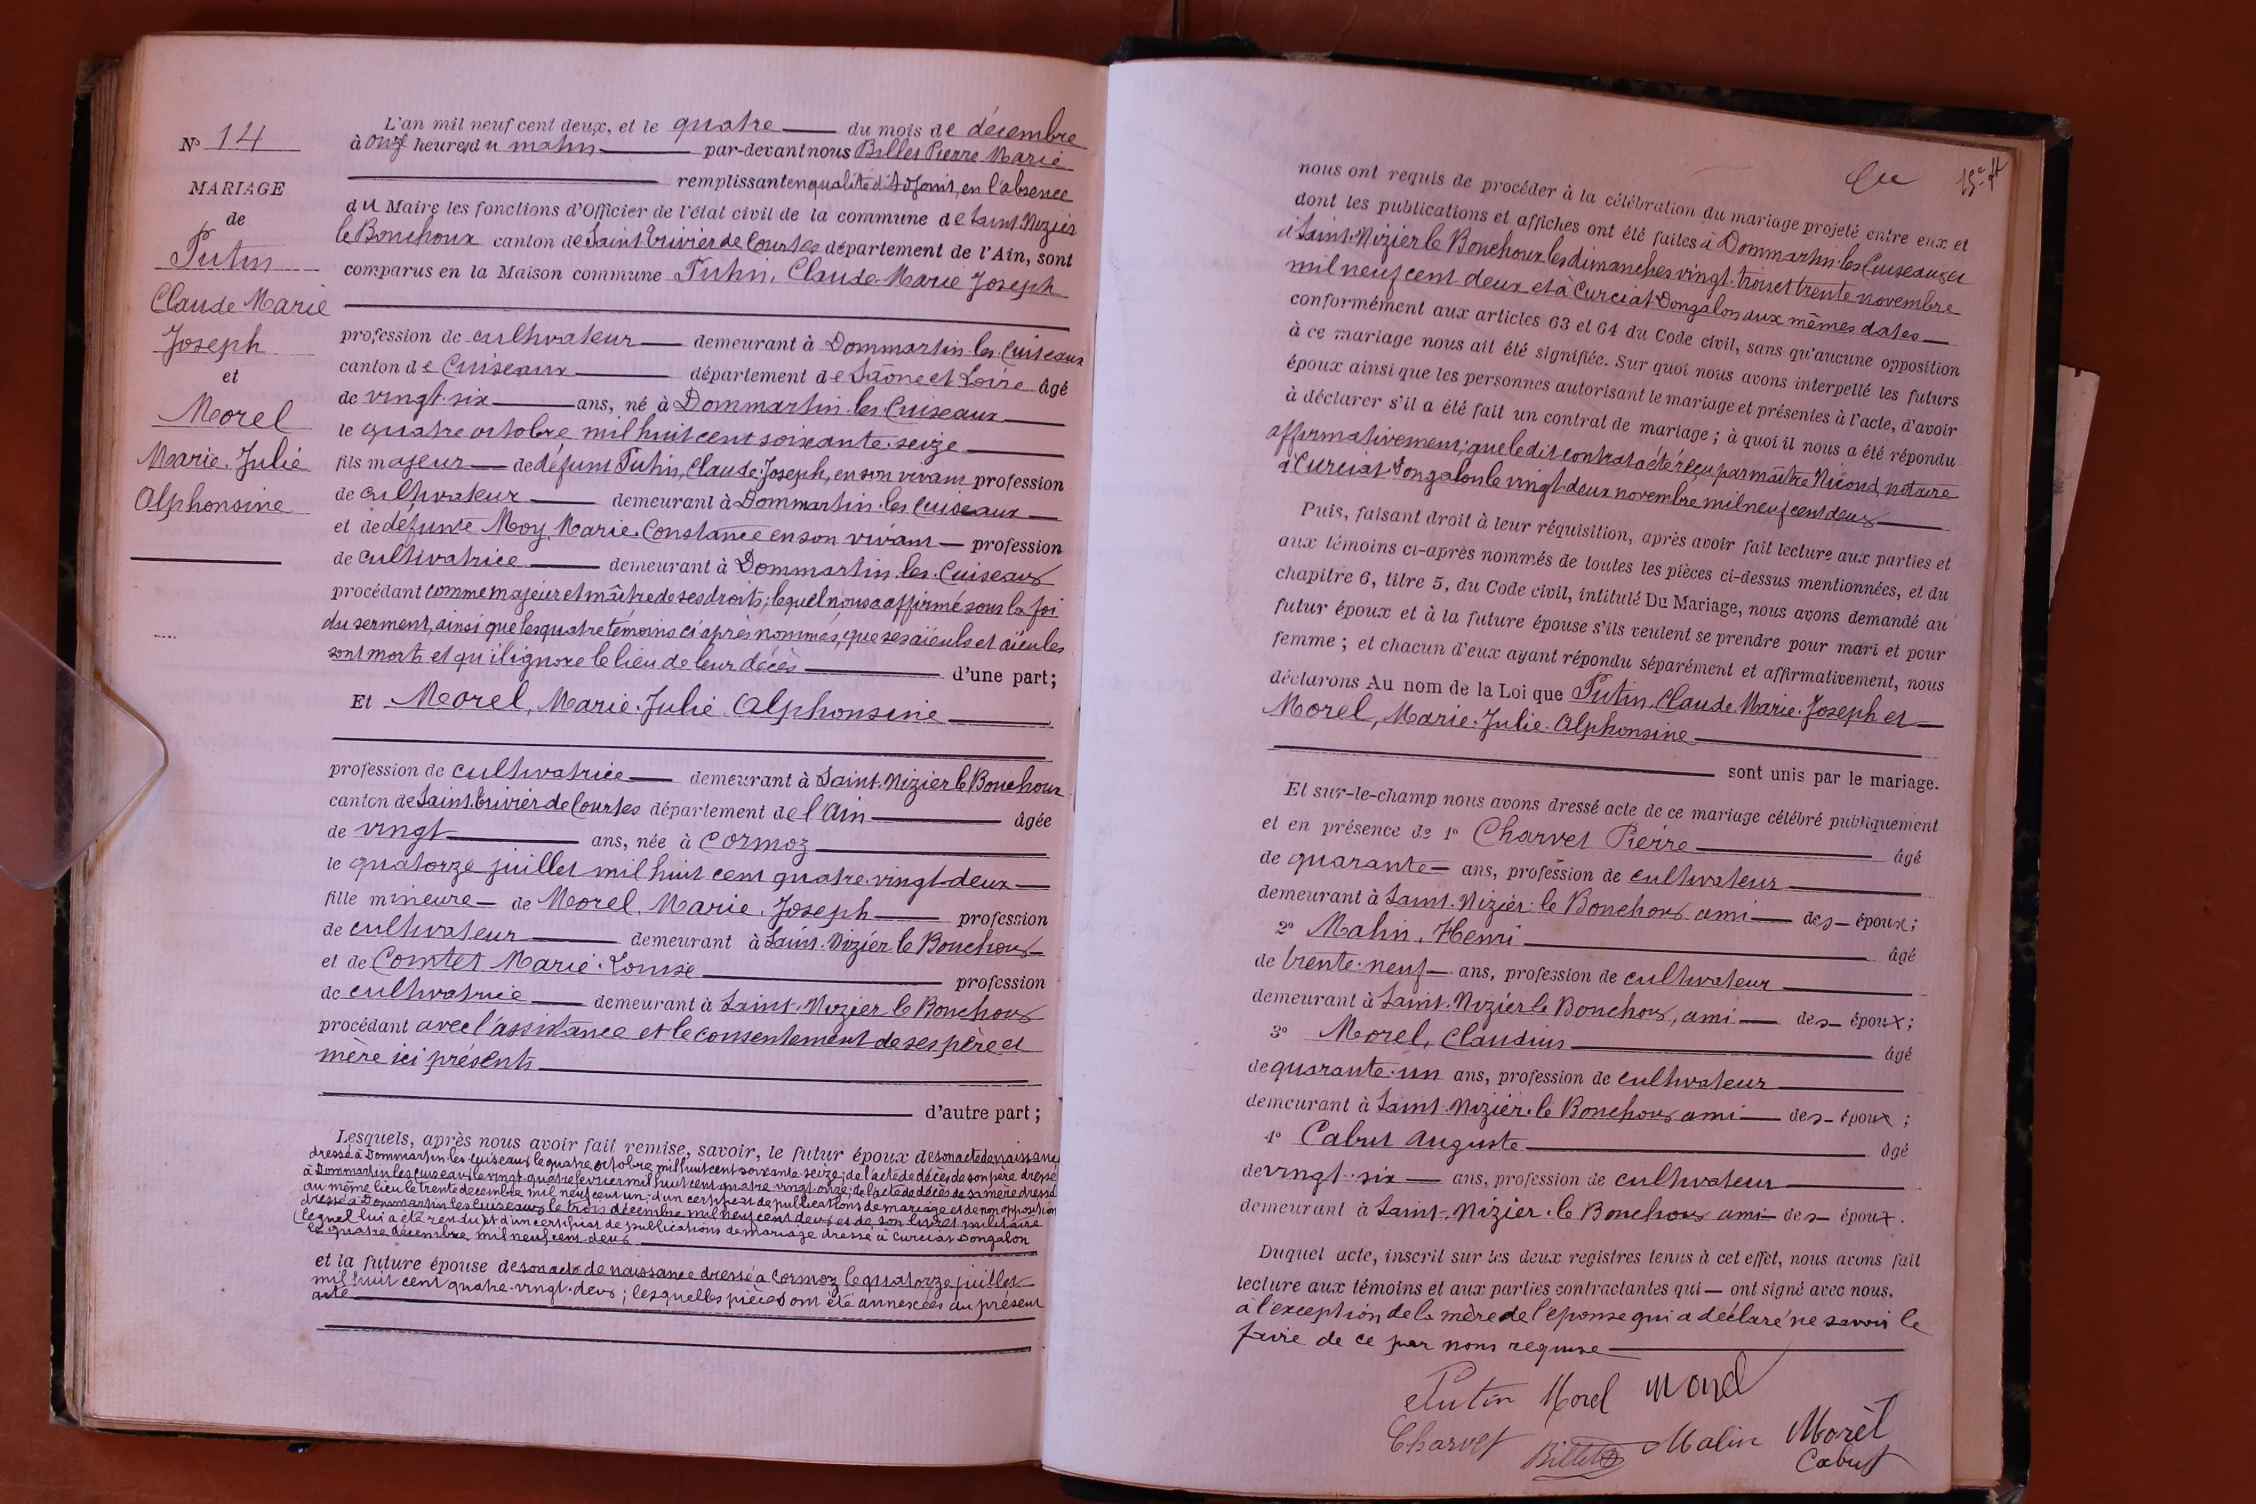 N° 14
MARIAGE
de
Putin
Claude Marie
Joseph
et
Morel
Marie. Julie
Alphonsine
L'an mil neuf cent deux, et le quatre du mois de décembre
à onze heures du matin par-devant nous Billet Pierre Marie
remplissant en qualité d'Adjoint, en l'absence
du Maire les fonctions d'Officier de l'état civil de la commune de Saint. Nizier
le Bouchoux canton de Saint Trivier de Courtes département de l'Ain, sont
comparus en la Maison commune Putin, Claude. Marie Joseph
profession de cultivateur demeurant à Dommartin les Cuiseaux
canton de Cuiseaux département de Saône et Loire âgé
de vingt. six ans, né à Dommartin les Cuiseaux
le quatre octobre mil huit cent soixante. seize
fils majeur de défunt Putin, Claude. Joseph, en son vivant profession
de cultivateur demeurant à Dommartin. les Cuiseaux
et de défunte Moy Marie. Constance en son vivant profession
de cultivatrice demeurant à Dommartin les. Cuiseaux
procédant comme majeur et maître de ses droits; lequel nous a affirmé sous la foi
du serment, ainsi que les quatre témoins ci après nommés, que ses aïeuls et aïeules
sont morts et qu'il ignore le lieu de leur décès d'une part;
Et Morel, Marie. Julie Alphonsine
profession de cultivatrice demeurant à Saint. Nizier le Bouchoux
canton de Saint. Trivier de Courtes département de l'Ain âgée
de vingt ans, née à Cormoz
le quatorze juillet mil huit cent quatre. vingt-deux
fille mineure de Morel, Marie. Joseph profession
de cultivateur demeurant à Saint. Nizier le Bouchoux
et de Comtet Marie. Louise profession
de cultivatrice demeurant à Saint. Nizier le Bouchoux
procédant avec l'assistance et le consentement de ses père et
mère ici présents
d'autre part;
Lesquels, après nous avoir fait remise, savoir, le futur époux de son acte de naissance
dressé à Dommartin les Cuiseaux le quatre octobre mil huit cent soixante seize; de l'acte de décès de son père dressé
à Dommartin les Cuiseaux le vingt quatre février mil huit cent quatre vingt onze; de l'acte de décès de sa mère dressé
au même lieu le trente décembre mil neuf cent un; d'un certificat de publications de mariage et de non opposition
dressé à Dommartin les Cuiseaux le trois décembre mil neuf cent deux et de son livret militaire
lequel lui a été rendu et d'un certificat de publications de mariage dressé à Curciat Dongalon
le quatre décembre mil neuf cent deux
et la future épouse de son acte de naissance dressé à Cormoz le quatorze juillet
mil huit cent quatre. vingt. deux; lesquelles pièces ont été annexées au présent
acte
nous ont requis de procéder à la célébration du mariage projeté entre eux et
dont les publications et affiches ont été faites à Dommartin. les Cuiseaux et
à Saint. Nizier le Bouchoux les dimanches vingt. trois et trente novembre
mil neuf cent deux et à Curciat Dongalon aux mêmes dates
conformément aux articles 63 et 64 du Code civil, sans qu'aucune opposition
à ce mariage nous ait été signifiée. Sur quoi nous avons interpellé les futurs
époux ainsi que les personnes autorisant le mariage et présentes à l'acte, d'avoir
à déclarer s'il a été fait un contrat de mariage; à quoi il nous a été répondu
affirmativement; que le dit contrat a été reçu par maître Nicond, notaire
à Curciat Dongalon le vingt-deux novembre mil neuf cent deux
Puis, faisant droit à leur réquisition, après avoir fait lecture aux parties et
aux témoins ci-après nommés de toutes les pièces ci-dessus mentionnées, et du
chapitre 6, titre 5, du Code civil, intitulé Du Mariage, nous avons demandé au
futur époux et à la future épouse s'ils veulent se prendre pour mari et pour
femme; et chacun d'eux ayant répondu séparément et affirmativement, nous
déclarons Au nom de la Loi que Putin, Claude. Marie. Joseph et
Morel, Marie. Julie. Alphonsine
sont unis par le mariage.
Et sur-le-champ nous avons dressé acte de ce mariage célébré publiquement
et en présence de 1° Charvet Pierre âgé
de quarante ans, profession de cultivateur
demeurant à Saint. Nizier. le Bouchoux ami des époux;
2° Malin, Henri âgé
de trente. neuf ans, profession de cultivateur
demeurant à Saint. Nizier le Bouchoux, ami des époux;
3° Morel, Claudius âgé
de quarante. un ans, profession de cultivateur
demeurant à Saint. Nizier. le Bouchoux ami des époux;
4° Cabut Auguste âgé
de vingt. six ans, profession de cultivateur
demeurant à Saint. Nizier. le Bouchoux ami des époux.
Duquel acte, inscrit sur les deux registres tenus à cet effet, nous avons fait
lecture aux témoins et aux parties contractantes qui ont signé avec nous.
à l'exception de la mère de l'épouse qui a déclaré ne savoir le
faire de ce par nous requise
Putin Morel Morel
Charvet Billet Malin Morel
Cabut